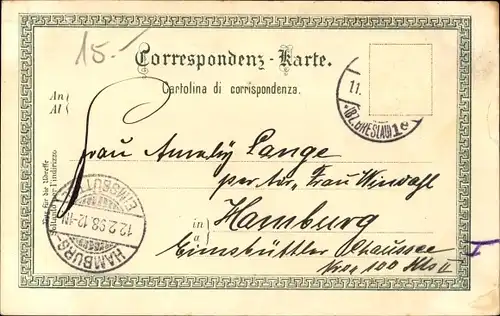 15.-
Correspondenz-Karte.
Cartolina di corrispondenza.
An
Al
Frau Amely Lange
per Adr. Frau Winwahl
in Hamburg
a
Eimsbüttler Chaussee
Nro 100 Hs II
Nur für die Adresse
Soltanto l'indirizzo
11.
(BZ. BRESLAU) 1 e
HAMBURG
12.2.98.12-1N
EIMSBÜTTEL